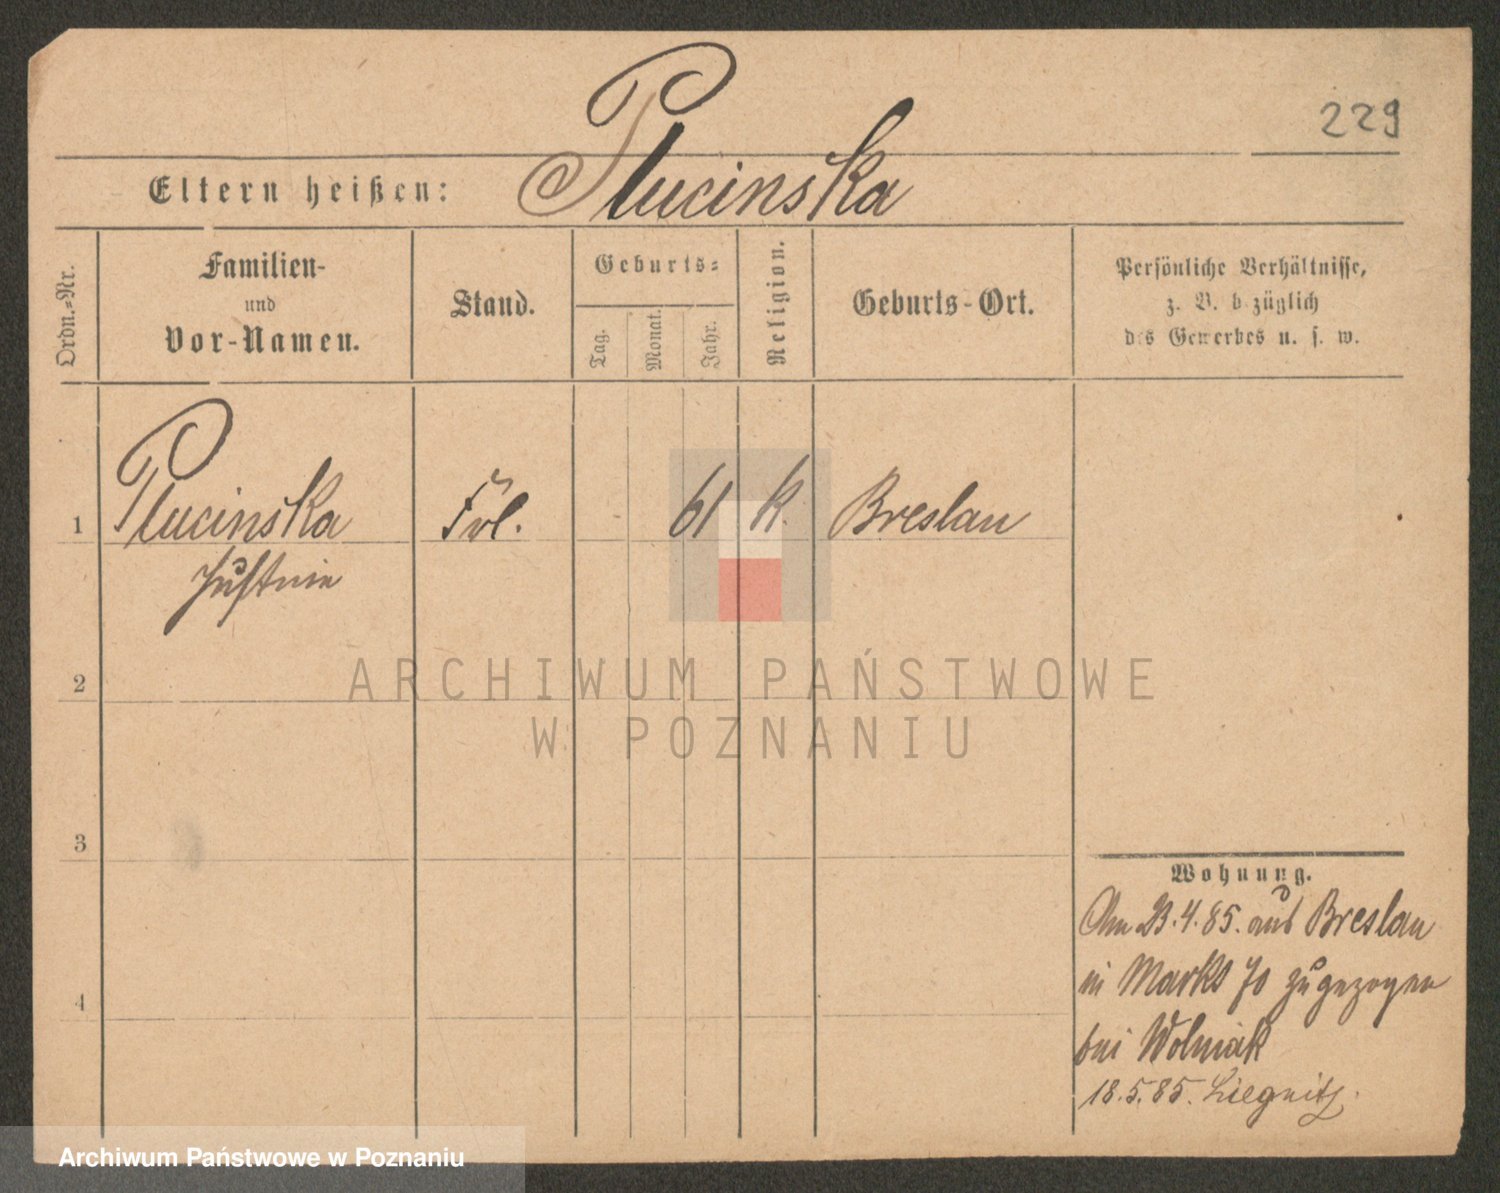 229
Plucinska
Eltern heißen:
Ordn.=Nr.
Familien-
und
Vor-Namen.
Stand.
Geburts=
Tag.
Monat.
Jahr.
Religion.
Geburts-Ort.
Persönliche Verhältnisse,
z. B. bezüglich
des Gewerbes u. s. w.
1 Plucinska Frl. 61 k. Breslau
Justnie
2
3
4
Wohnung.
Am 23.4.85. aus Breslau
in Markt 70 zugezogen
bei Wolniak
18.5.85. Liegnitz.
ARCHIWUM PAŃSTWOWE
W POZNANIU
Archiwum Państwowe w Poznaniu